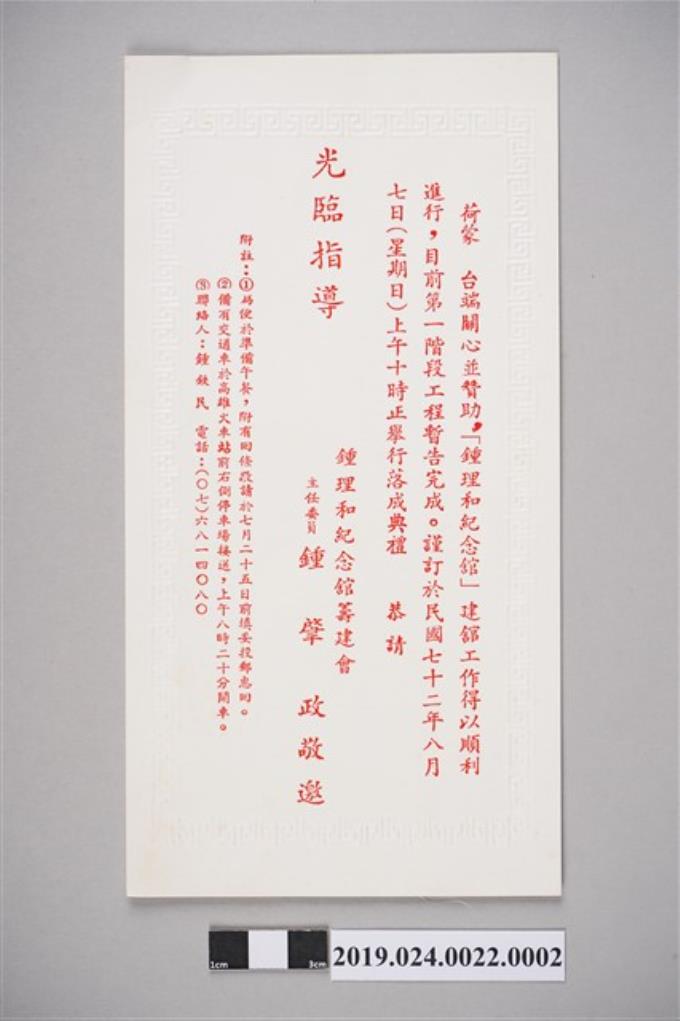 荷蒙　台端關心並贊助，「鍾理和紀念館」建舘工作得以順利
進行，目前第一階段工程暫告完成。謹訂於民國七十二年八月
七日（星期日）上午十時正舉行落成典禮　恭請
光臨指導
鍾理和紀念館籌建會
主任委員　鍾肇政敬邀
附註：①為便於準備午餐，附有回條敬請於七月二十五日前填妥投郵惠回。
②備有交通車於高雄火車站前右側停車場接送，上午八時二十分開車。
③聯絡人：鍾鉄民　電話：（〇七）六八一四〇八〇
1cm 3cm
2019.024.0022.0002